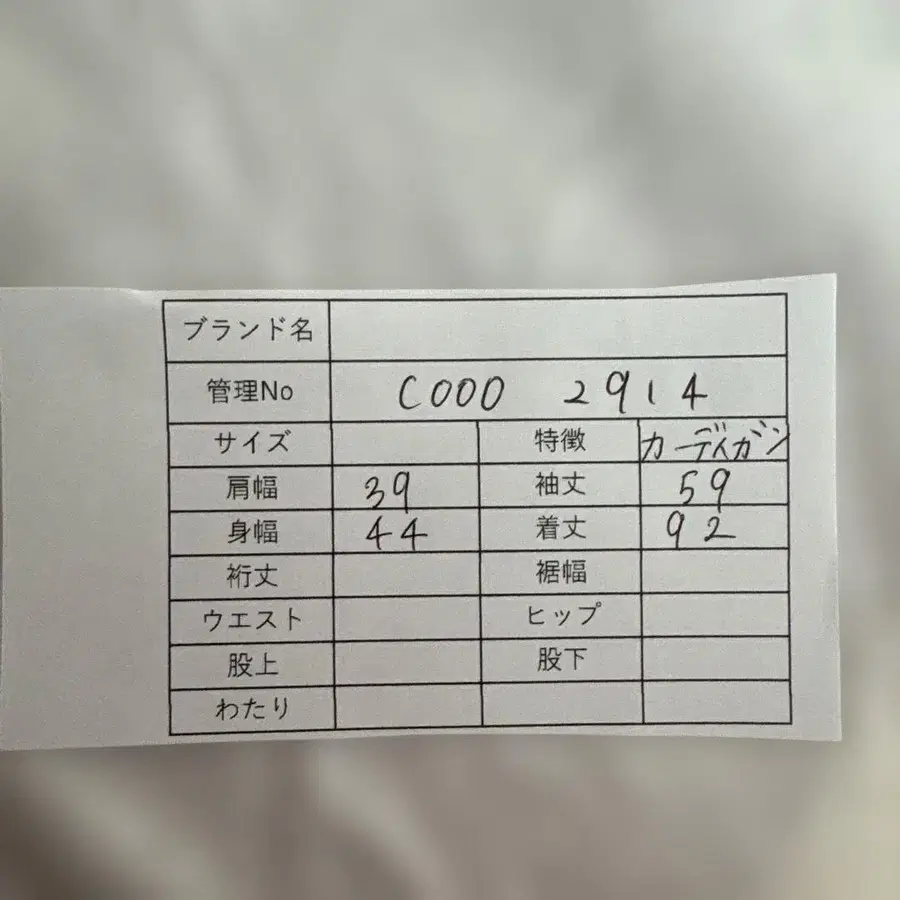 ブランド名
管理No C000 2914
サイズ 特徴 カーディガン
肩幅 39 袖丈 59
身幅 44 着丈 92
裄丈 裾幅
ウエスト ヒップ
股上 股下
わたり